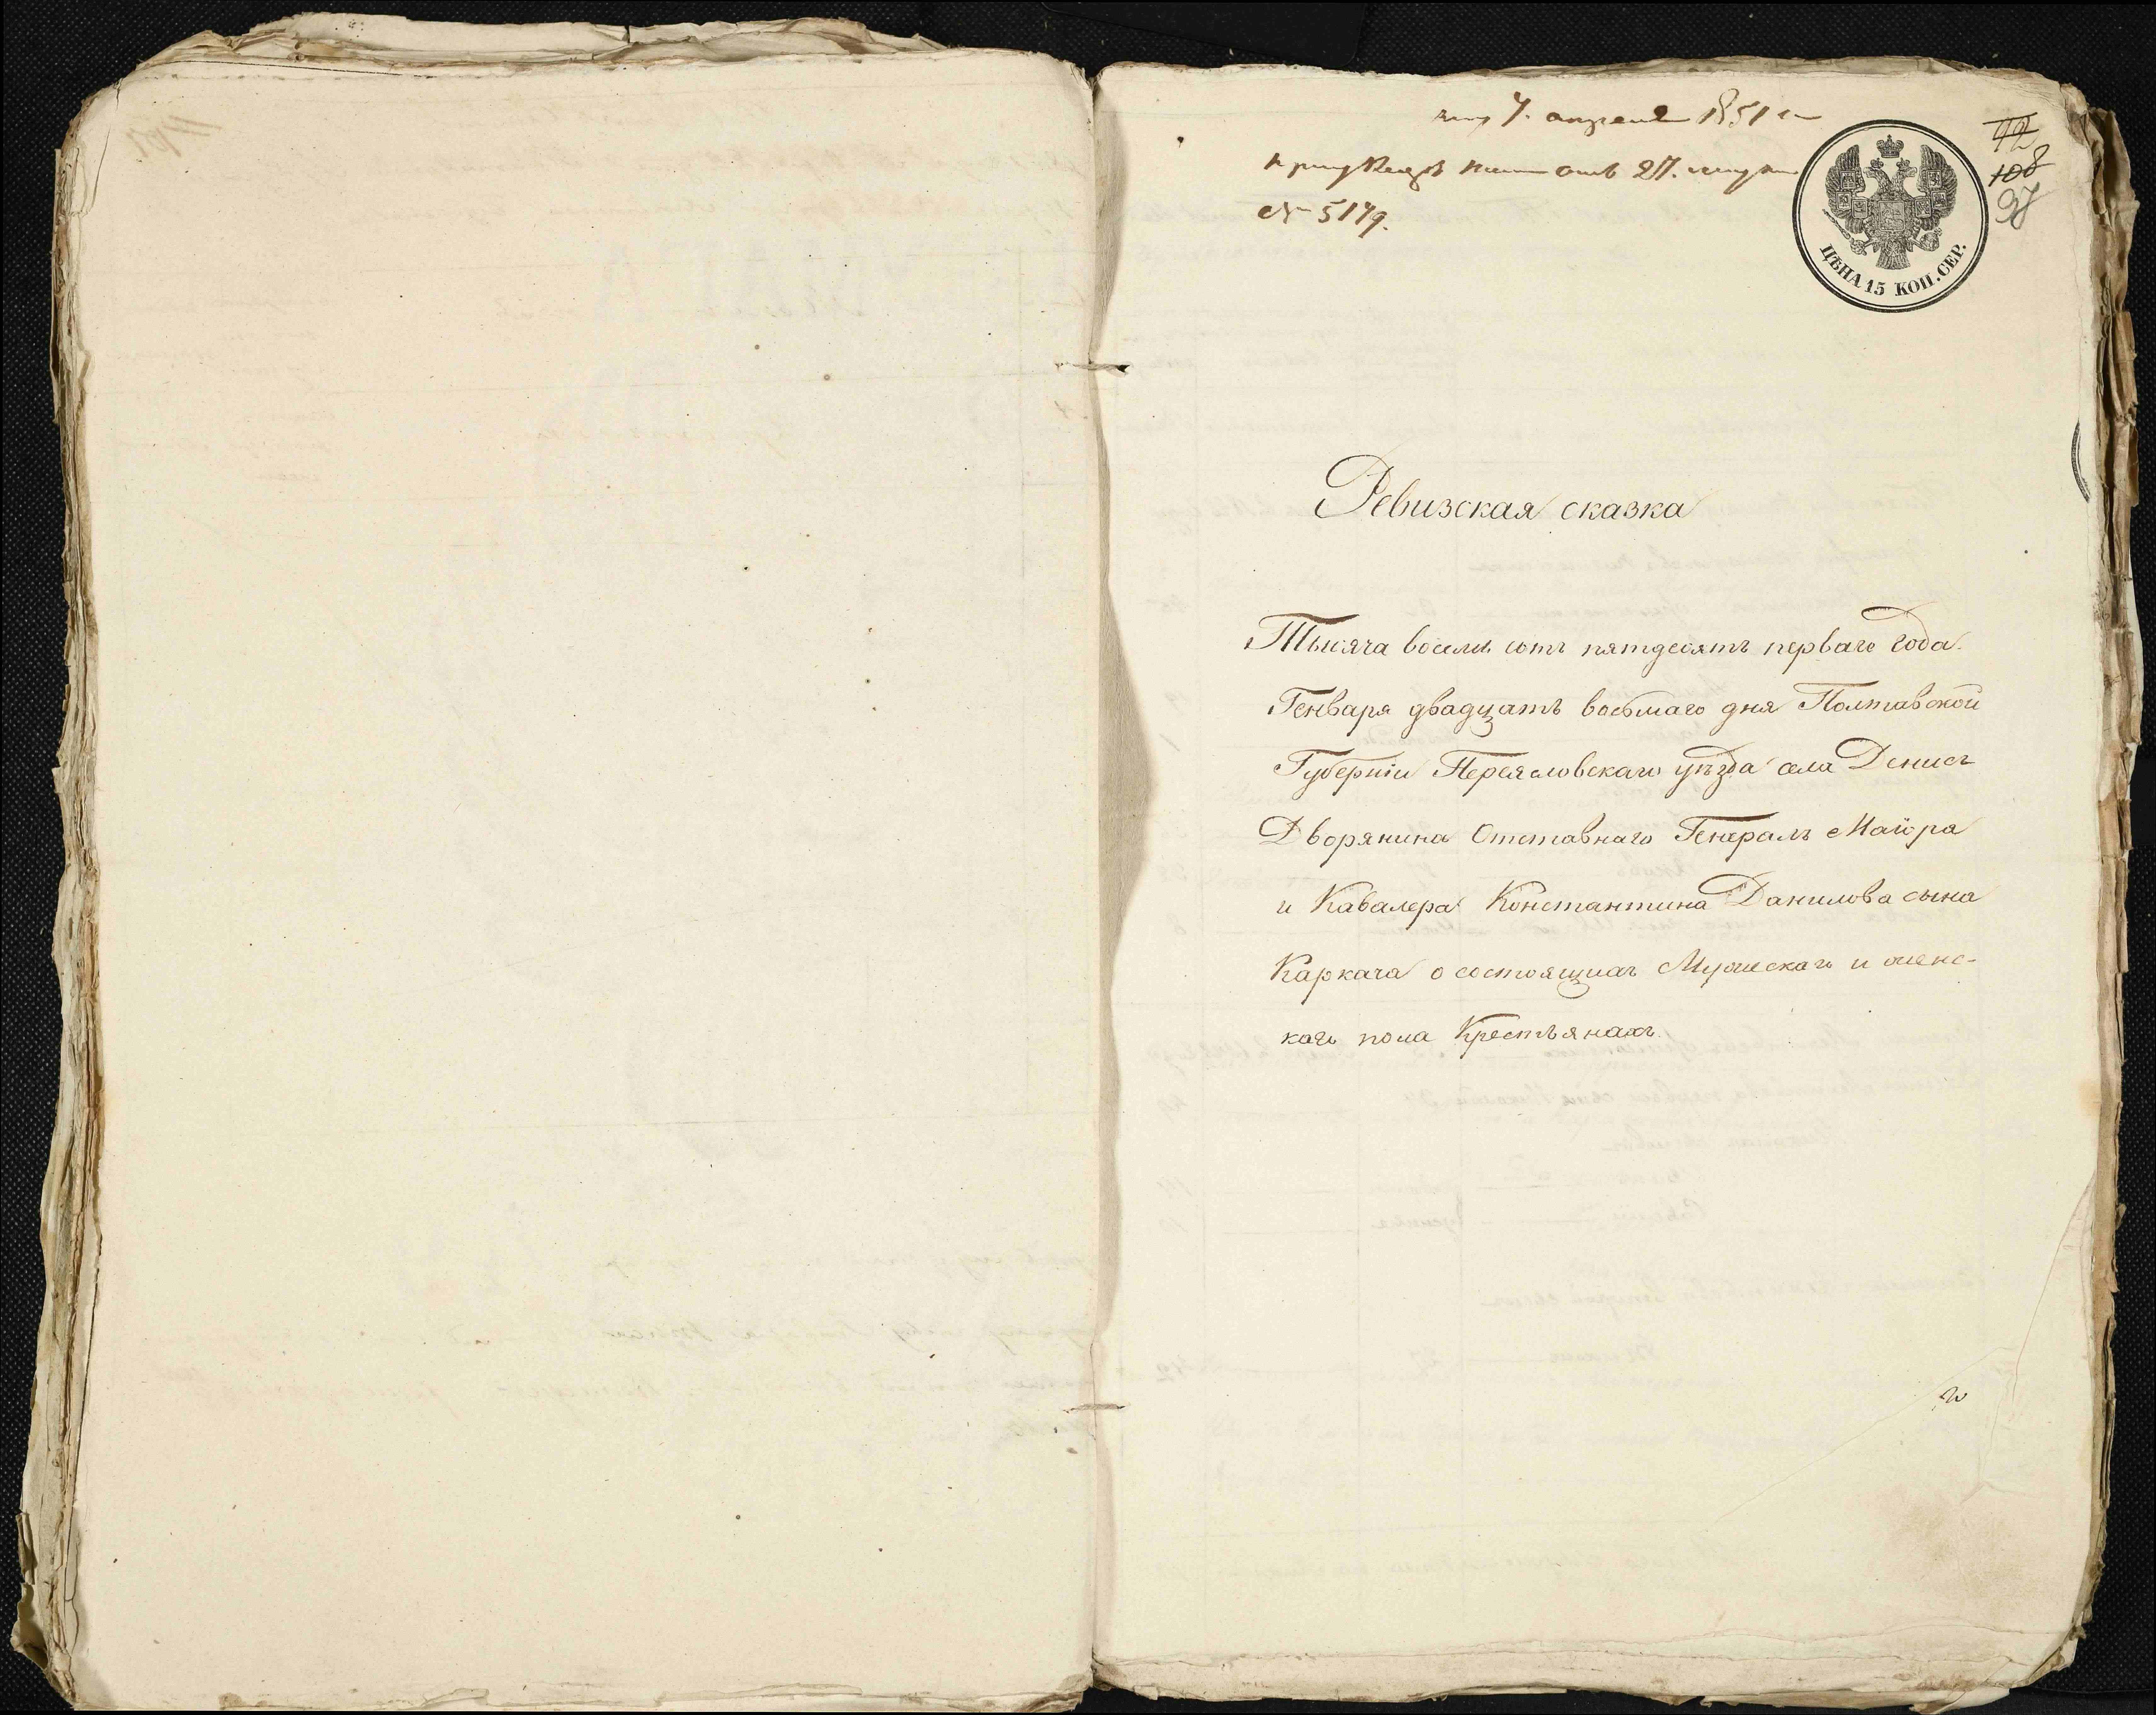 7. апреля 1851
№ 5179.
ЦѢНА 15 КОП. СЕР.
92
108
98
Ревизская сказка
Тысяча восемь сотъ пятдесятъ перваго года.
Генваря двадцать восьмаго дня Полтавской
Губерніи Переясловскаго уѣзда села Денисъ
Дворянина Отставнаго Генералъ Маіора
и Кавалера Константина Данилова сына
Каркача о состоящихъ Мужескаго и женс-
каго пола Крестьянахъ.